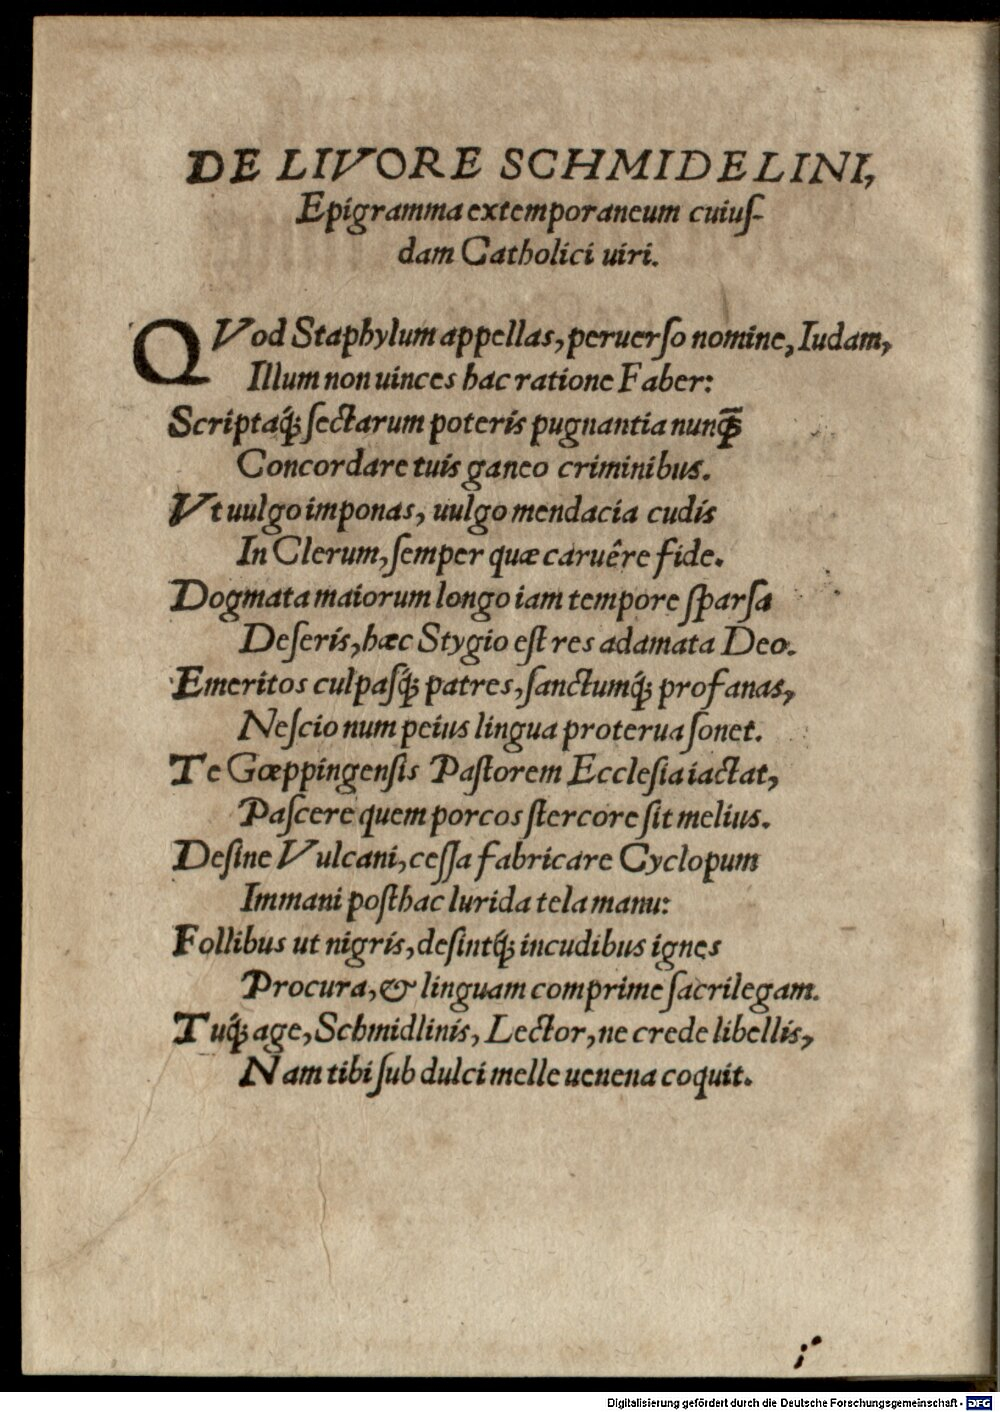 DE LIVORE SCHMIDELINI,
Epigramma extemporaneum cuiuſ-
dam Catholici uiri.
QVod Staphylum appellas, peruerſo nomine, Iudam,
Illum non uinces hac ratione Faber:
Scriptaq́ꝫ ſectarum poteris pugnantia nunꝙ̃
Concordare tuis ganeo criminibus.
Vt uulgo imponas, uulgo mendacia cudis
In Clerum, ſemper quæ caruêre fide.
Dogmata maiorum longo iam tempore ſparſa
Deſeris, hæc Stygio eſt res adamata Deo.
Emeritos culpaſq́ꝫ patres, ſanctumq́ꝫ profanas,
Neſcio num peius lingua proterua ſonet.
Te Gœppingenſis Paſtorem Eccleſia iactat,
Paſcere quem porcos ſtercore ſit melius.
Deſine Vulcani, ceſſa fabricare Cyclopum
Immani poſthac lurida tela manu:
Follibus ut nigris, deſintq́ꝫ incudibus ignes
Procura, & linguam comprime ſacrilegam.
Tuq́ꝫ age, Schmidlinis, Lector, ne crede libellis,
Nam tibi ſub dulci melle uenena coquit.
Digitalisierung gefördert durch die Deutsche Forschungsgemeinschaft - DFG